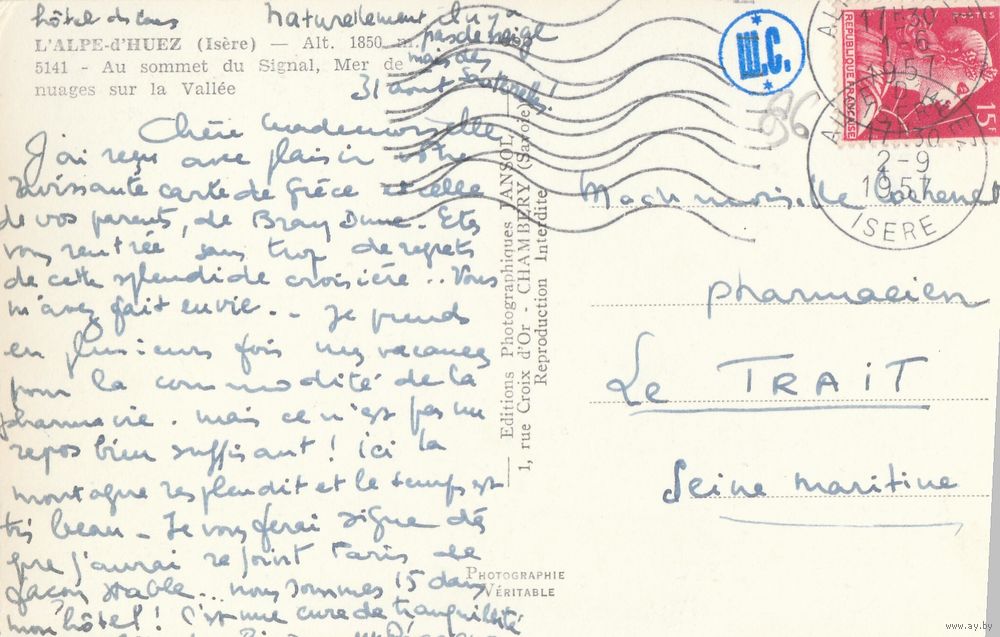 hôtel des cours
Naturellement il n'y a
pas de neige
mais des
sauterelles!
L'ALPE-d'HUEZ (Isère) — Alt. 1850 m.
5141 - Au sommet du Signal, Mer de
nuages sur la Vallée
31 août
Chère Mademoiselle
J'ai reçu avec plaisir votre
ravissante carte de Grèce et celle
de vos parents, de Bray Dune. Etes
vous rentrée sans trop de regrets
de cette splendide croisière.. Vous
m'avez fait envie.. Je prends
en plusieurs fois mes vacances
pour la commodité de la
pharmacie. mais ce n'est pas un
repos bien suffisant! ici la
montagne resplendit et le temps est
très beau. Je vous ferai signe dès
que j'aurai rejoint Paris de
façon stable... nous sommes 15 dans
mon hôtel! C'est une cure de tranquillité
Editions Photographiques JANSOL
1, rue Croix d'Or - CHAMBÉRY (Savoie)
Reproduction Interdite
PHOTOGRAPHIE
VÉRITABLE
Ш.С.
86
POSTES
REPUBLIQUE FRANÇAISE
15F
17H30
1-6
1957
17H30
2-9
1957
ISERE
Mademoiselle
pharmacien
Le TRAIT
Seine maritime
www.ay.by